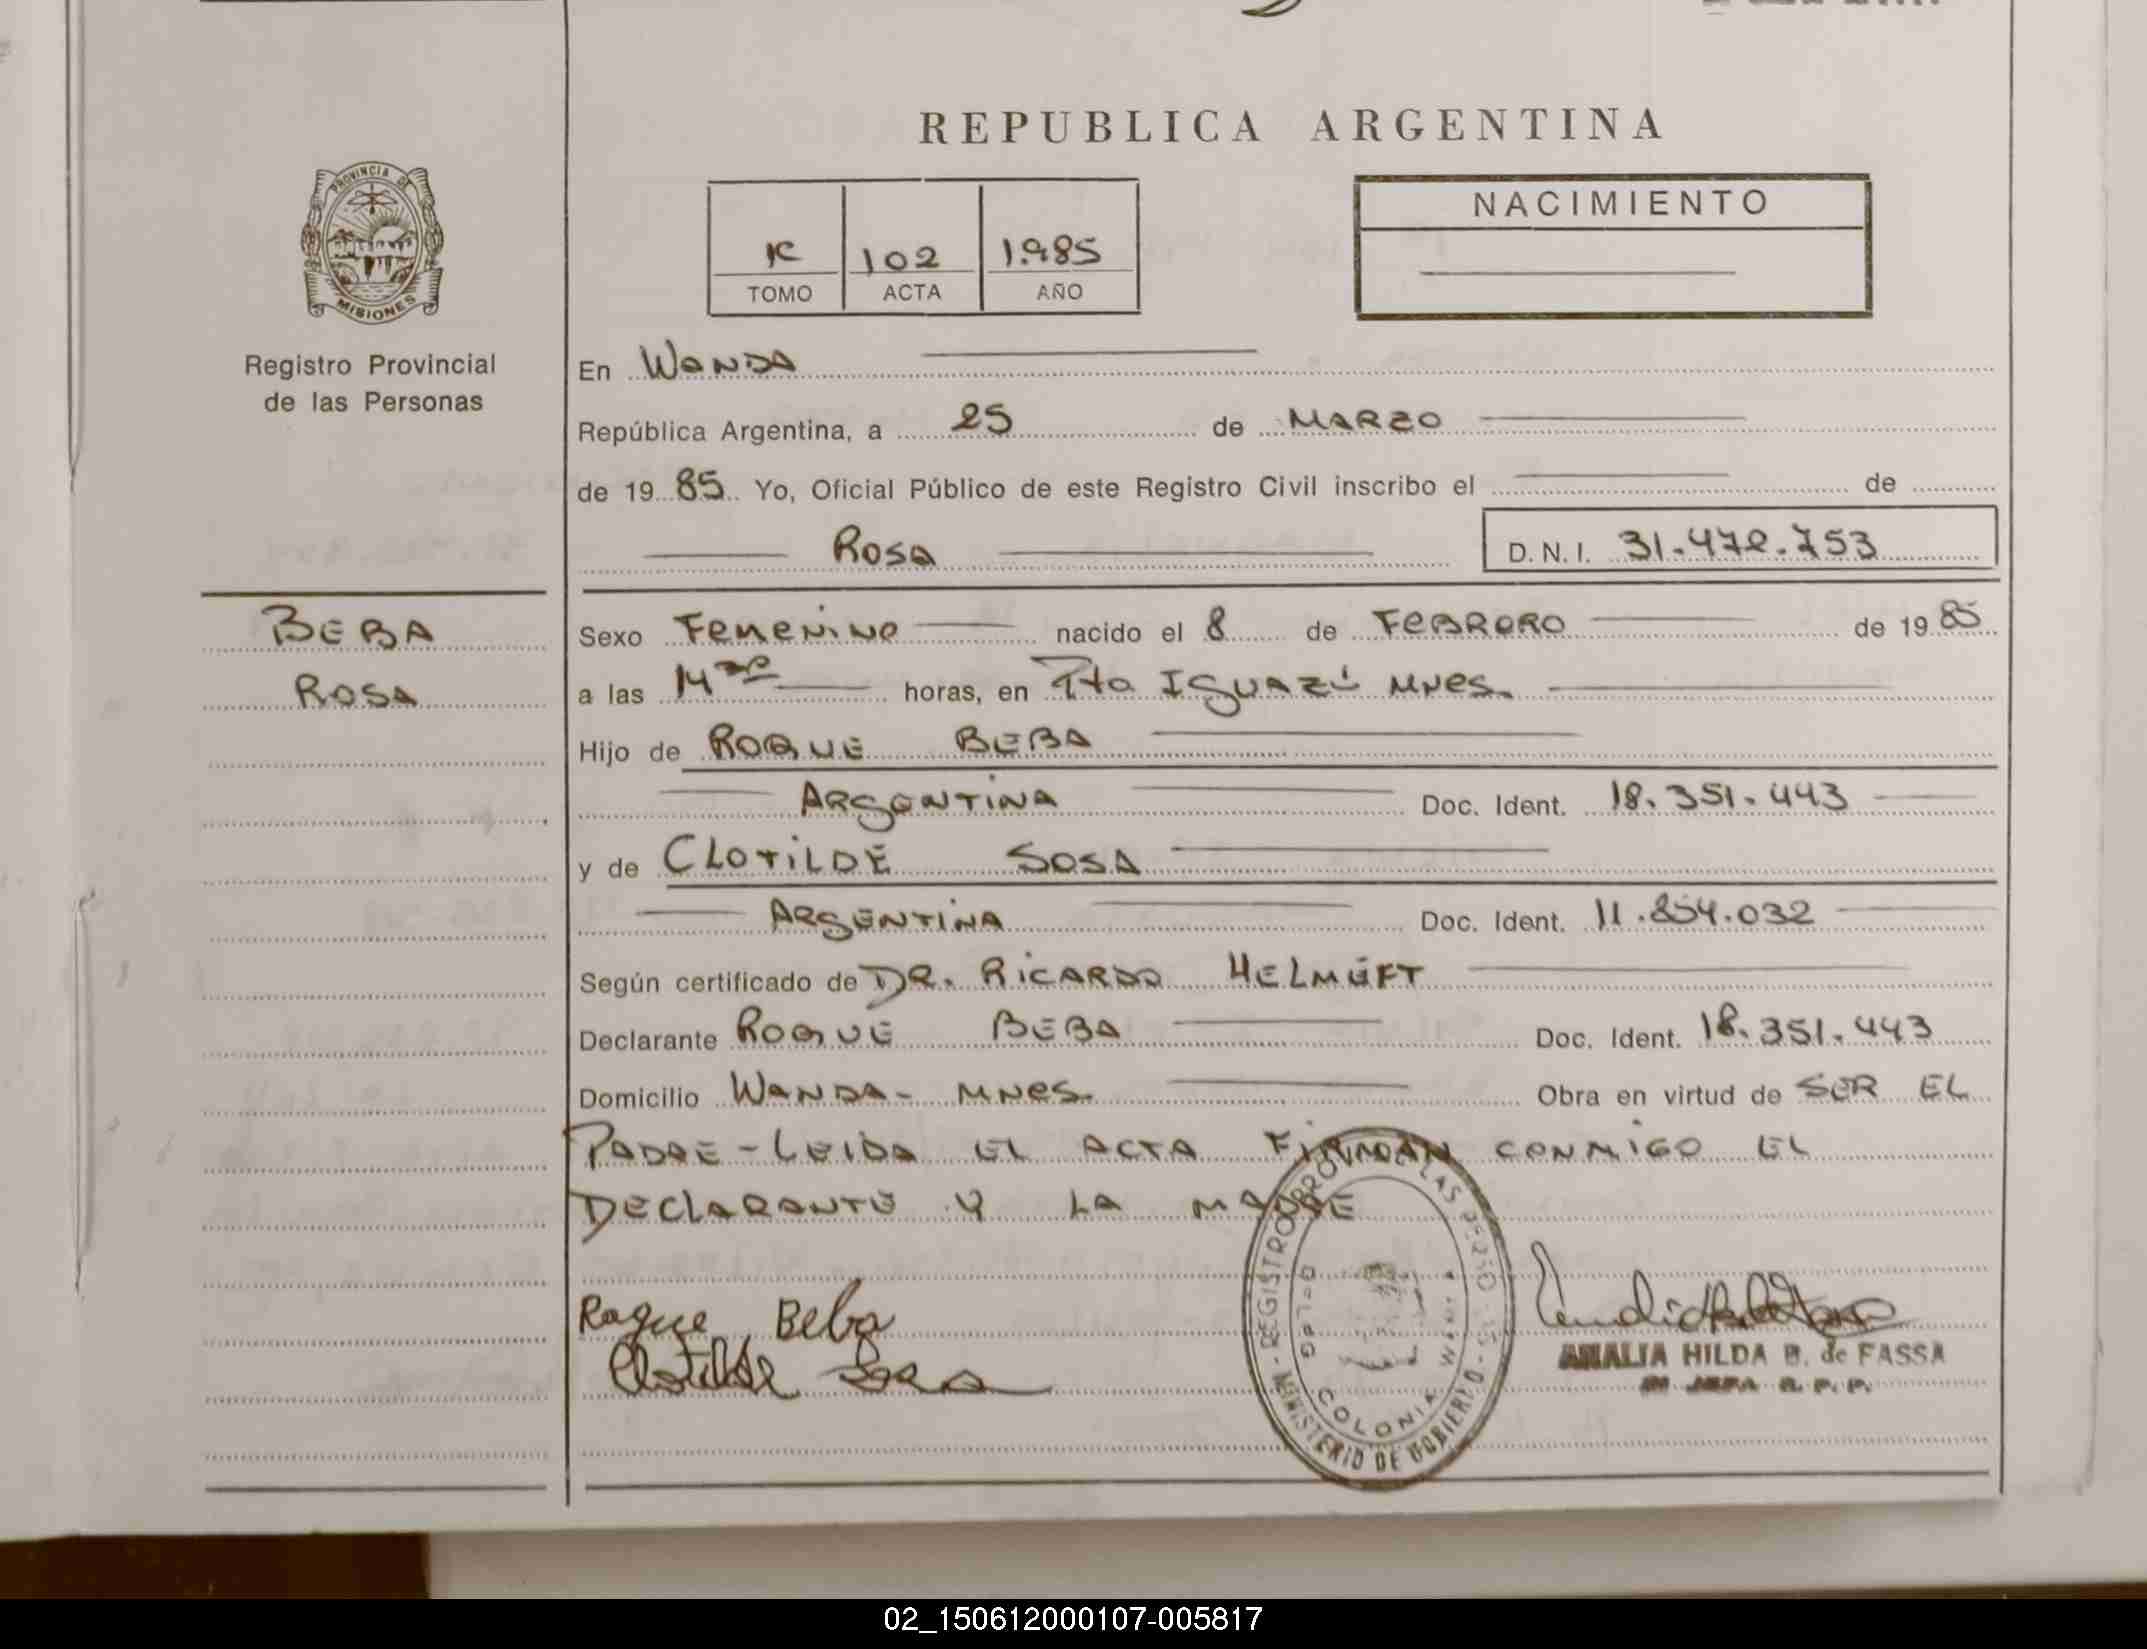 REPUBLICA ARGENTINA
PROVINCIA DE
MISIONES
Registro Provincial
de las Personas
K 102 1.985
TOMO ACTA AÑO
NACIMIENTO
En WANDA
República Argentina, a 25 de MARZO
de 19 85 Yo, Oficial Público de este Registro Civil inscribo el de
ROSA D.N.I. 31.472.753
BEBA
ROSA
Sexo Femenino nacido el 8 de FEBRERO de 19 85
a las 14 horas, en Pto IGUAZÚ MNES.
Hijo de ROQUE BEBA
ARGENTINA Doc. Ident. 18.351.443
y de CLOTILDE SOSA
ARGENTINA Doc. Ident. 11.854.032
Según certificado de DR. RICARDO
Declarante ROQUE BEBA Doc. Ident. 18.351.443
Domicilio WANDA - MNES. Obra en virtud de SER EL
PADRE - LEIDA EL ACTA FIRMAN CONMIGO EL
DECLARANTE Y LA MADRE
Roque Beba
Clotilde Sosa
COLONIA WANDA
MINISTERIO DE GOBIERNO
ANALIA HILDA B. de FASSA
JEFA R. P. P.
02_150612000107-005817